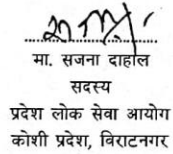 मा. सजना दाहाल
सदस्य
प्रदेश लोक सेवा आयोग
कोशी प्रदेश, विराटनगर